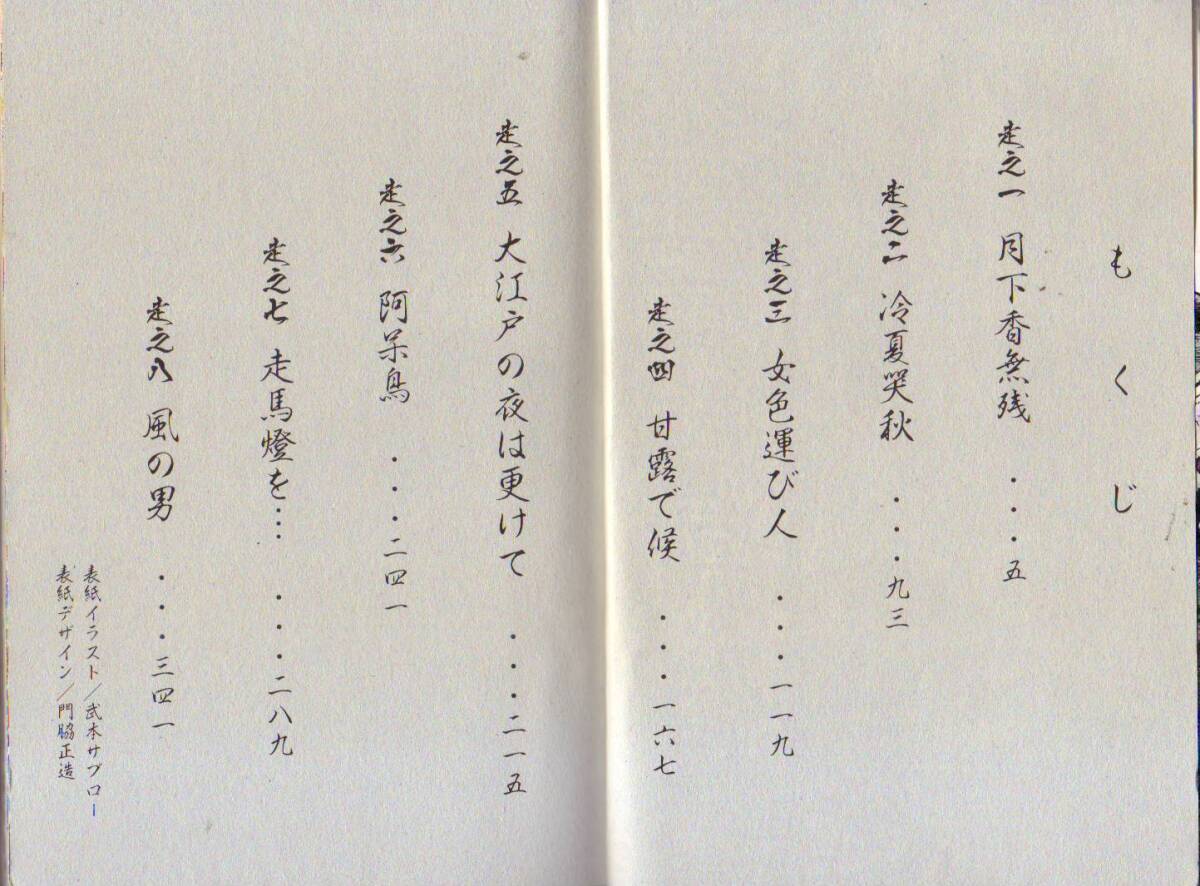 もくじ
走之一 月下香無残 ・・・五
走之二 冷夏哭秋 ・・・九三
走之三 女色運び人 ・・・一一九
走之四 甘露で候 ・・・一六七
走之五 大江戸の夜は更けて ・・・二一五
走之六 阿呆鳥 ・・・二四一
走之七 走馬燈を… ・・・二八九
走之八 風の男 ・・・三四一
表紙イラスト／武本サブロー
表紙デザイン／門脇正造